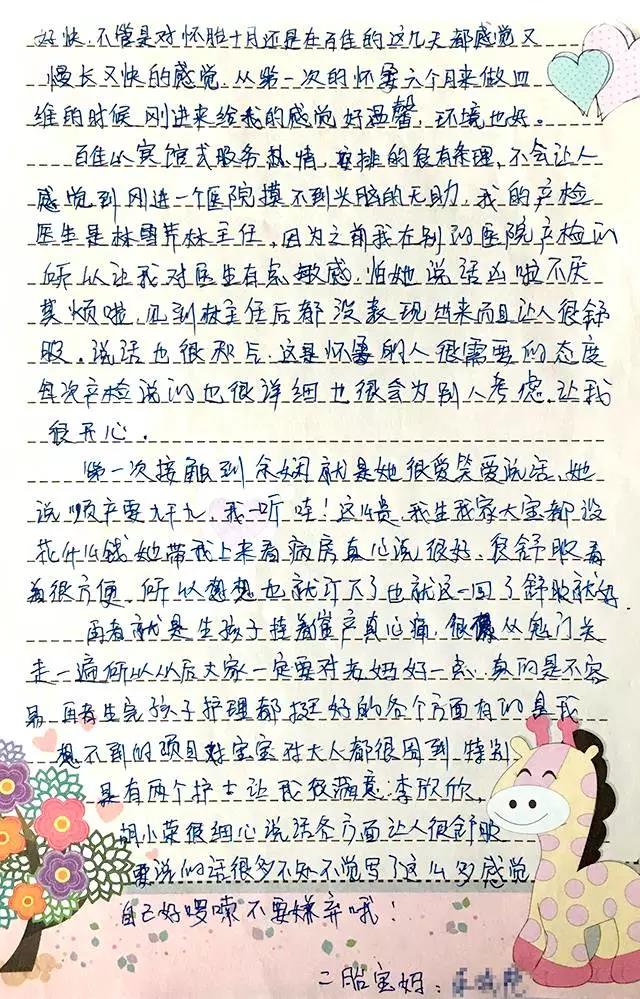 好快.不管是对怀胎十月还是在百佳的这几天都感觉又
慢长又快的感觉.从第一次的怀孕六个月来做四
维的时候.刚进来给我的感觉好温馨.环境也好。
百佳以宾馆式服务热情.安排的很有条理.不会让人
感觉到刚进一个医院摸不到头脑的无助.我的产检
医生是林雪芹林主任.因为之前我在别的医院产检的
所以让我对医生有点敏感.怕她说话凶啦不厌
其烦啦.见到林主任后都没表现出来而且让人很舒
服.说话也很和气.这是怀孕的人很需要的态度
每次产检说的也很详细也很会为别人考虑.让我
很开心.
第一次接触到余娴就是她很爱笑爱说话.她
说顺产要九千九.我一听哇!这么贵.我生我家大宝都没
花什么钱她带我上来看病房真心说很好.很舒服看
着很方便.所以想想也就订下了也就这一回了舒服就好
再者就是生孩子挂着催产真心痛.很像从鬼门关
走一遍所以以后大家一定要对老妈好一点.真的是不容
易.再者生完孩子护理都挺好的各个方面有的是我
想不到的项目对宝宝对大人都很周到.特别
是有两个护士让我很满意.李欣欣.
胡小荣很细心说话各方面让人很舒服
要说的话很多不知不觉写了这么多感觉
自己好啰嗦不要嫌弃哦!
二胎宝妈: